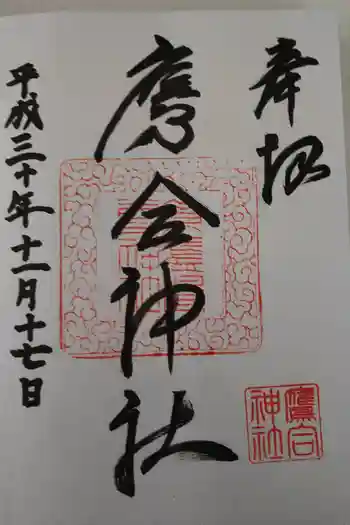 奉拝
鷹合神社
平成三十年十一月十七日
鷹合
神社